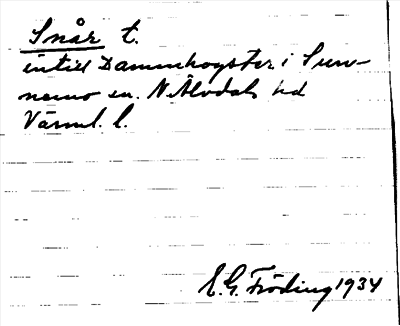 Snår t.
intill Dammhogstor i Sun-
nemo sn. N. Älvdals hd
Värml. l.
E. G. Fröding 1934